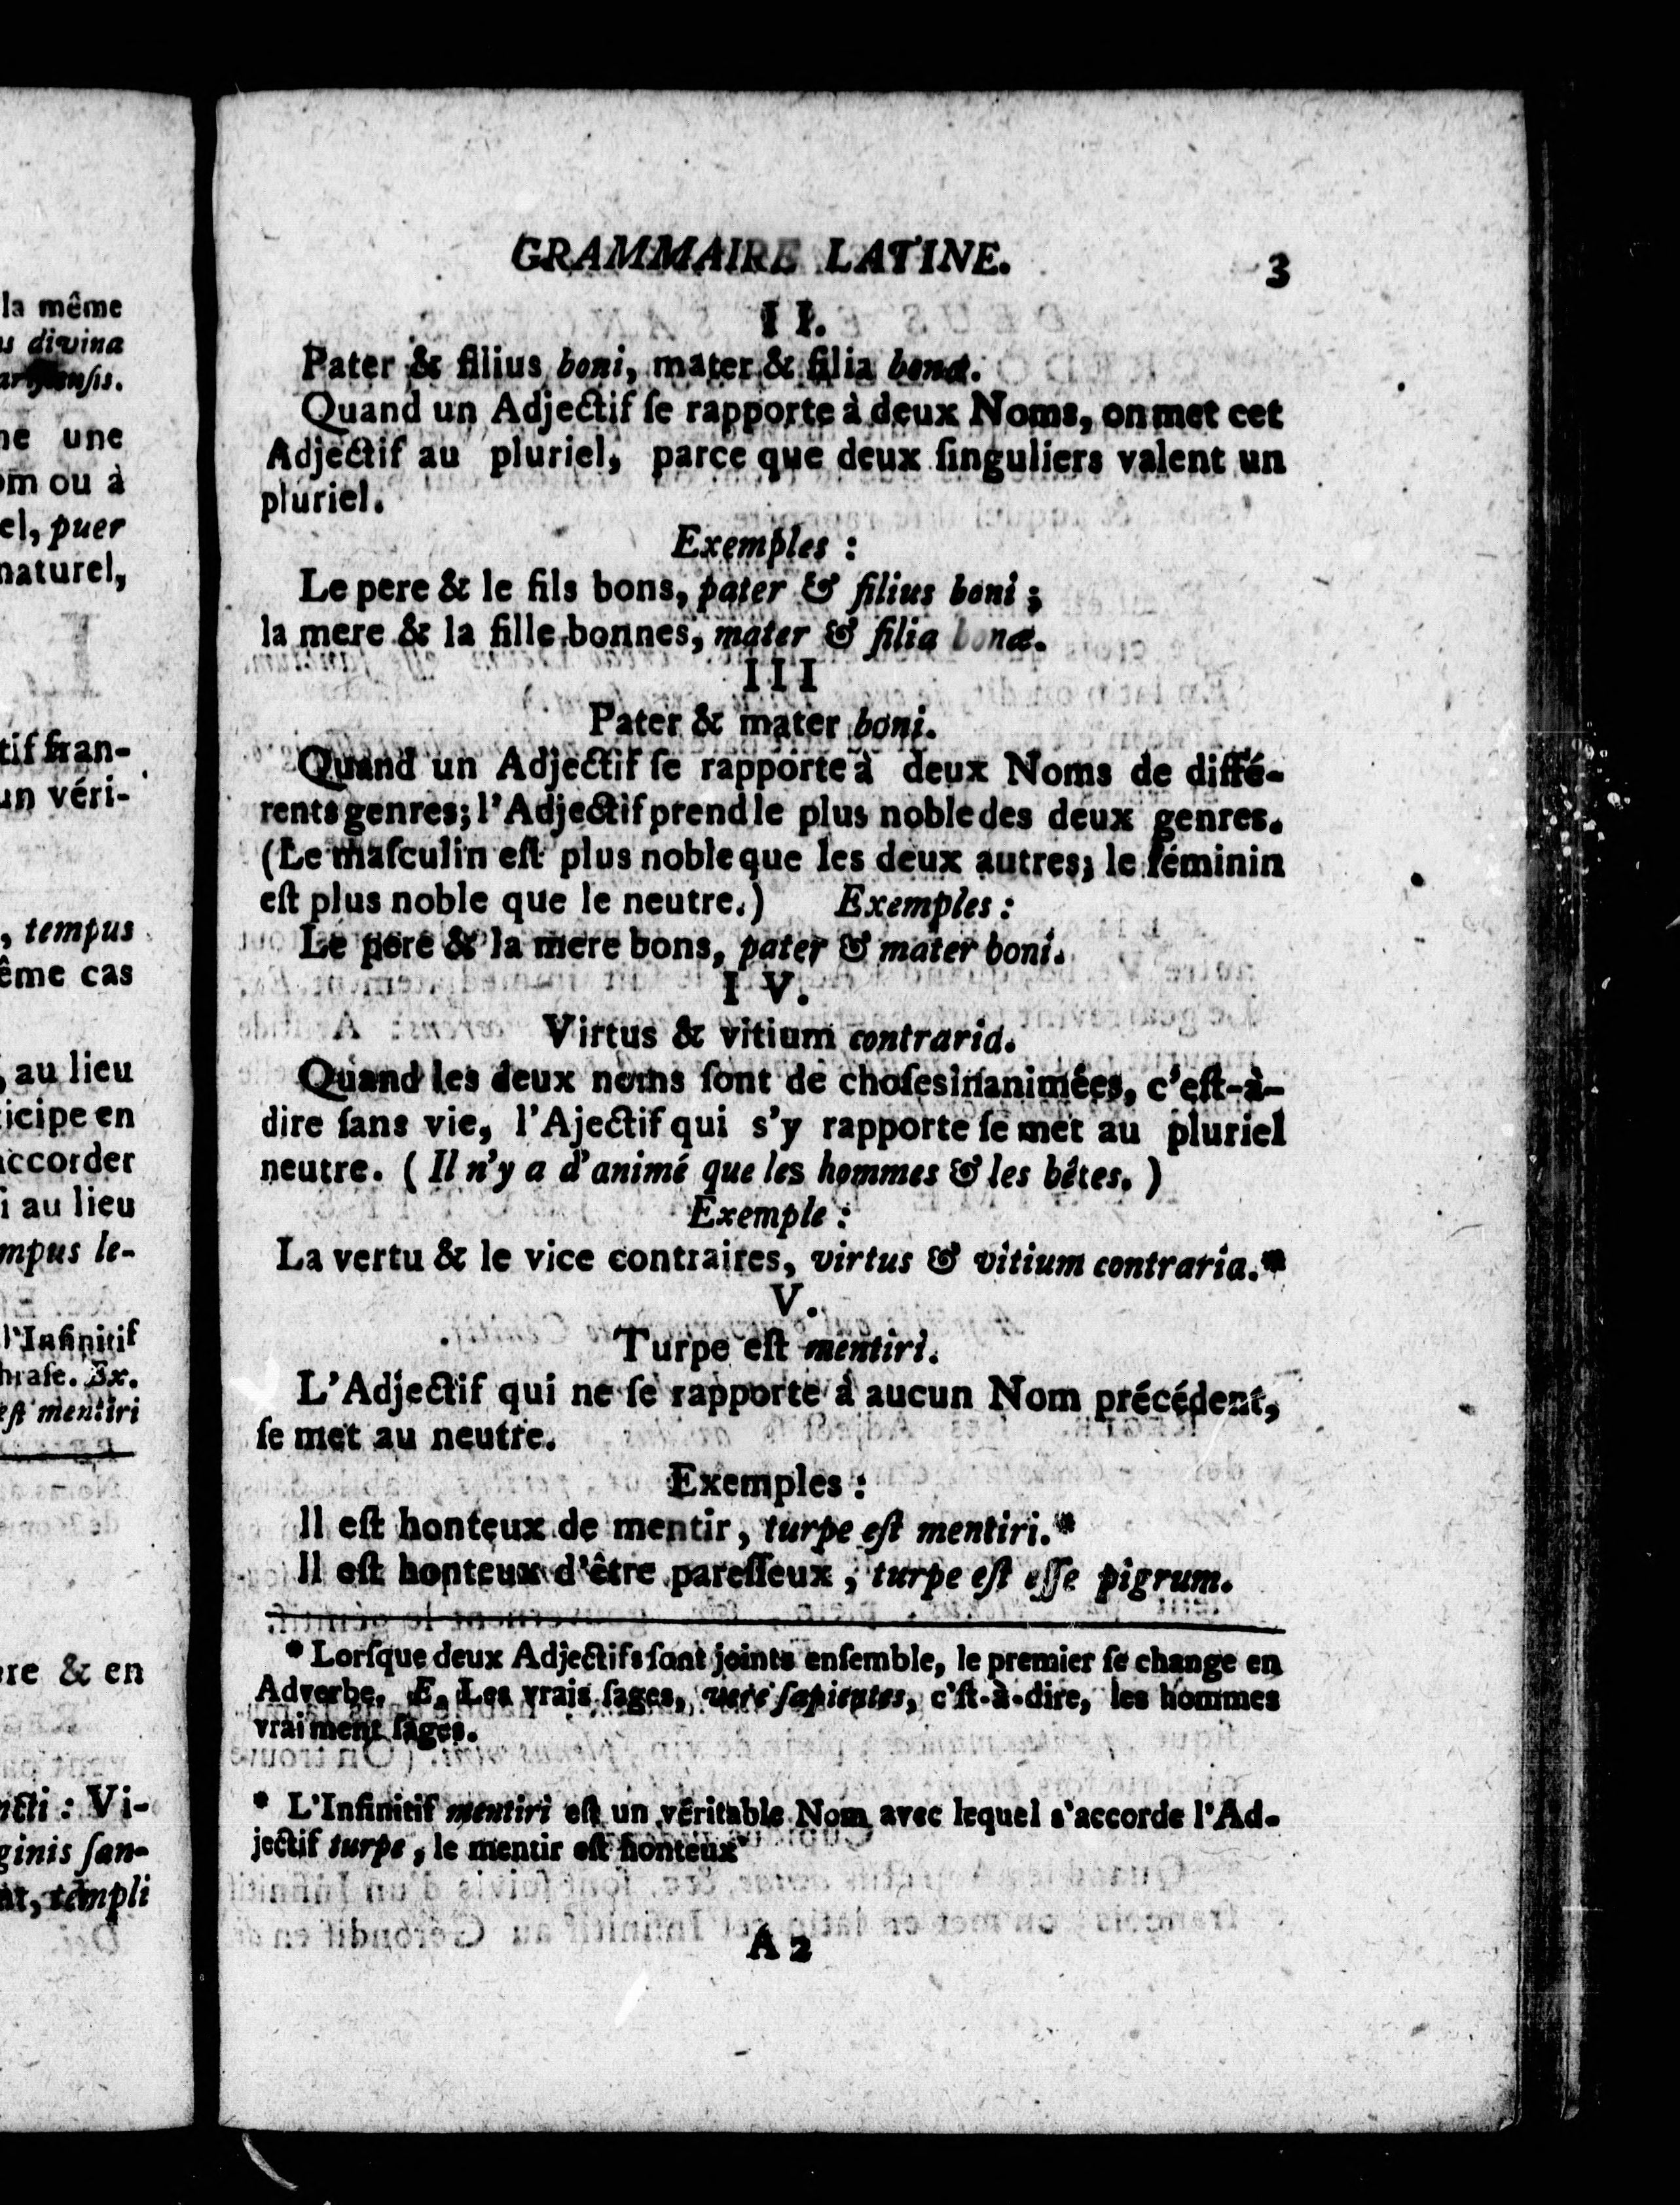 la même
s divina
ne une
om ou à
el, puer
naturel,
tif fran-
un véri-
, tempus
ême cas
, au lieu
ticipe en
accorder
i au lieu
mpus le-
l'Infinitif
hraſe. Ex.
eſt mentiri
ere & en
ncti : Vi-
ginis ſan-
nt, templi
GRAMMAIRE LATINE. 3
II.
Pater & filius boni, mater & filia bonæ.
Quand un Adjectif ſe rapporte à deux Noms, on met cet
Adjectif au pluriel, parce que deux ſinguliers valent un
pluriel.
Exemples :
Le pere & le fils bons, pater & filius boni ;
la mere & la fille bonnes, mater & filia bonæ.
III
Pater & mater boni.
Quand un Adjectif ſe rapporte à deux Noms de diffé-
rents genres; l'Adjectif prend le plus noble des deux genres.
(Le maſculin eſt plus noble que les deux autres; le féminin
eſt plus noble que le neutre.) Exemples :
Le pere & la mere bons, pater & mater boni.
IV.
Virtus & vitium contraria.
Quand les deux noms ſont de choſes inanimées, c'eſt-à-
dire ſans vie, l'Ajectif qui s'y rapporte ſe met au pluriel
neutre. ( Il n'y a d'animé que les hommes & les bêtes. )
Exemple :
La vertu & le vice contraires, virtus & vitium contraria.*
V.
Turpe eſt mentiri.
L'Adjectif qui ne ſe rapporte à aucun Nom précédent,
ſe met au neutre.
Exemples :
Il eſt honteux de mentir, turpe eſt mentiri.*
Il eſt honteux d'être pareſſeux, turpe eſt eſſe pigrum.
* Lorſque deux Adjectifs ſont joints enſemble, le premier ſe change en
Adverbe. E. Les vrais ſages, verè ſapientes, c'ſt-à-dire, les hommes
vraiment ſages.
* L'Infinitif mentiri eſt un véritable Nom avec lequel s'accorde l'Ad-
jectif turpe, le mentir eſt honteux
A 2